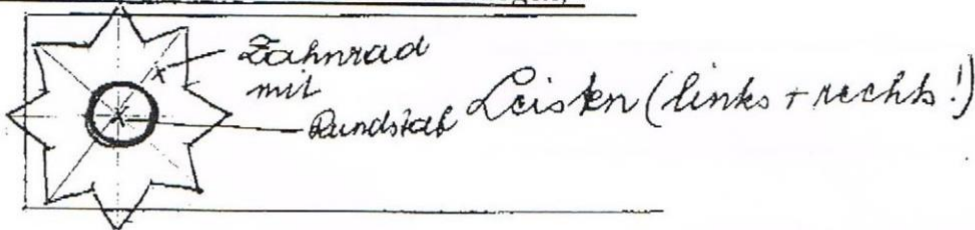 Zahnrad
mit
Rundstab Leisten (links + rechts!)